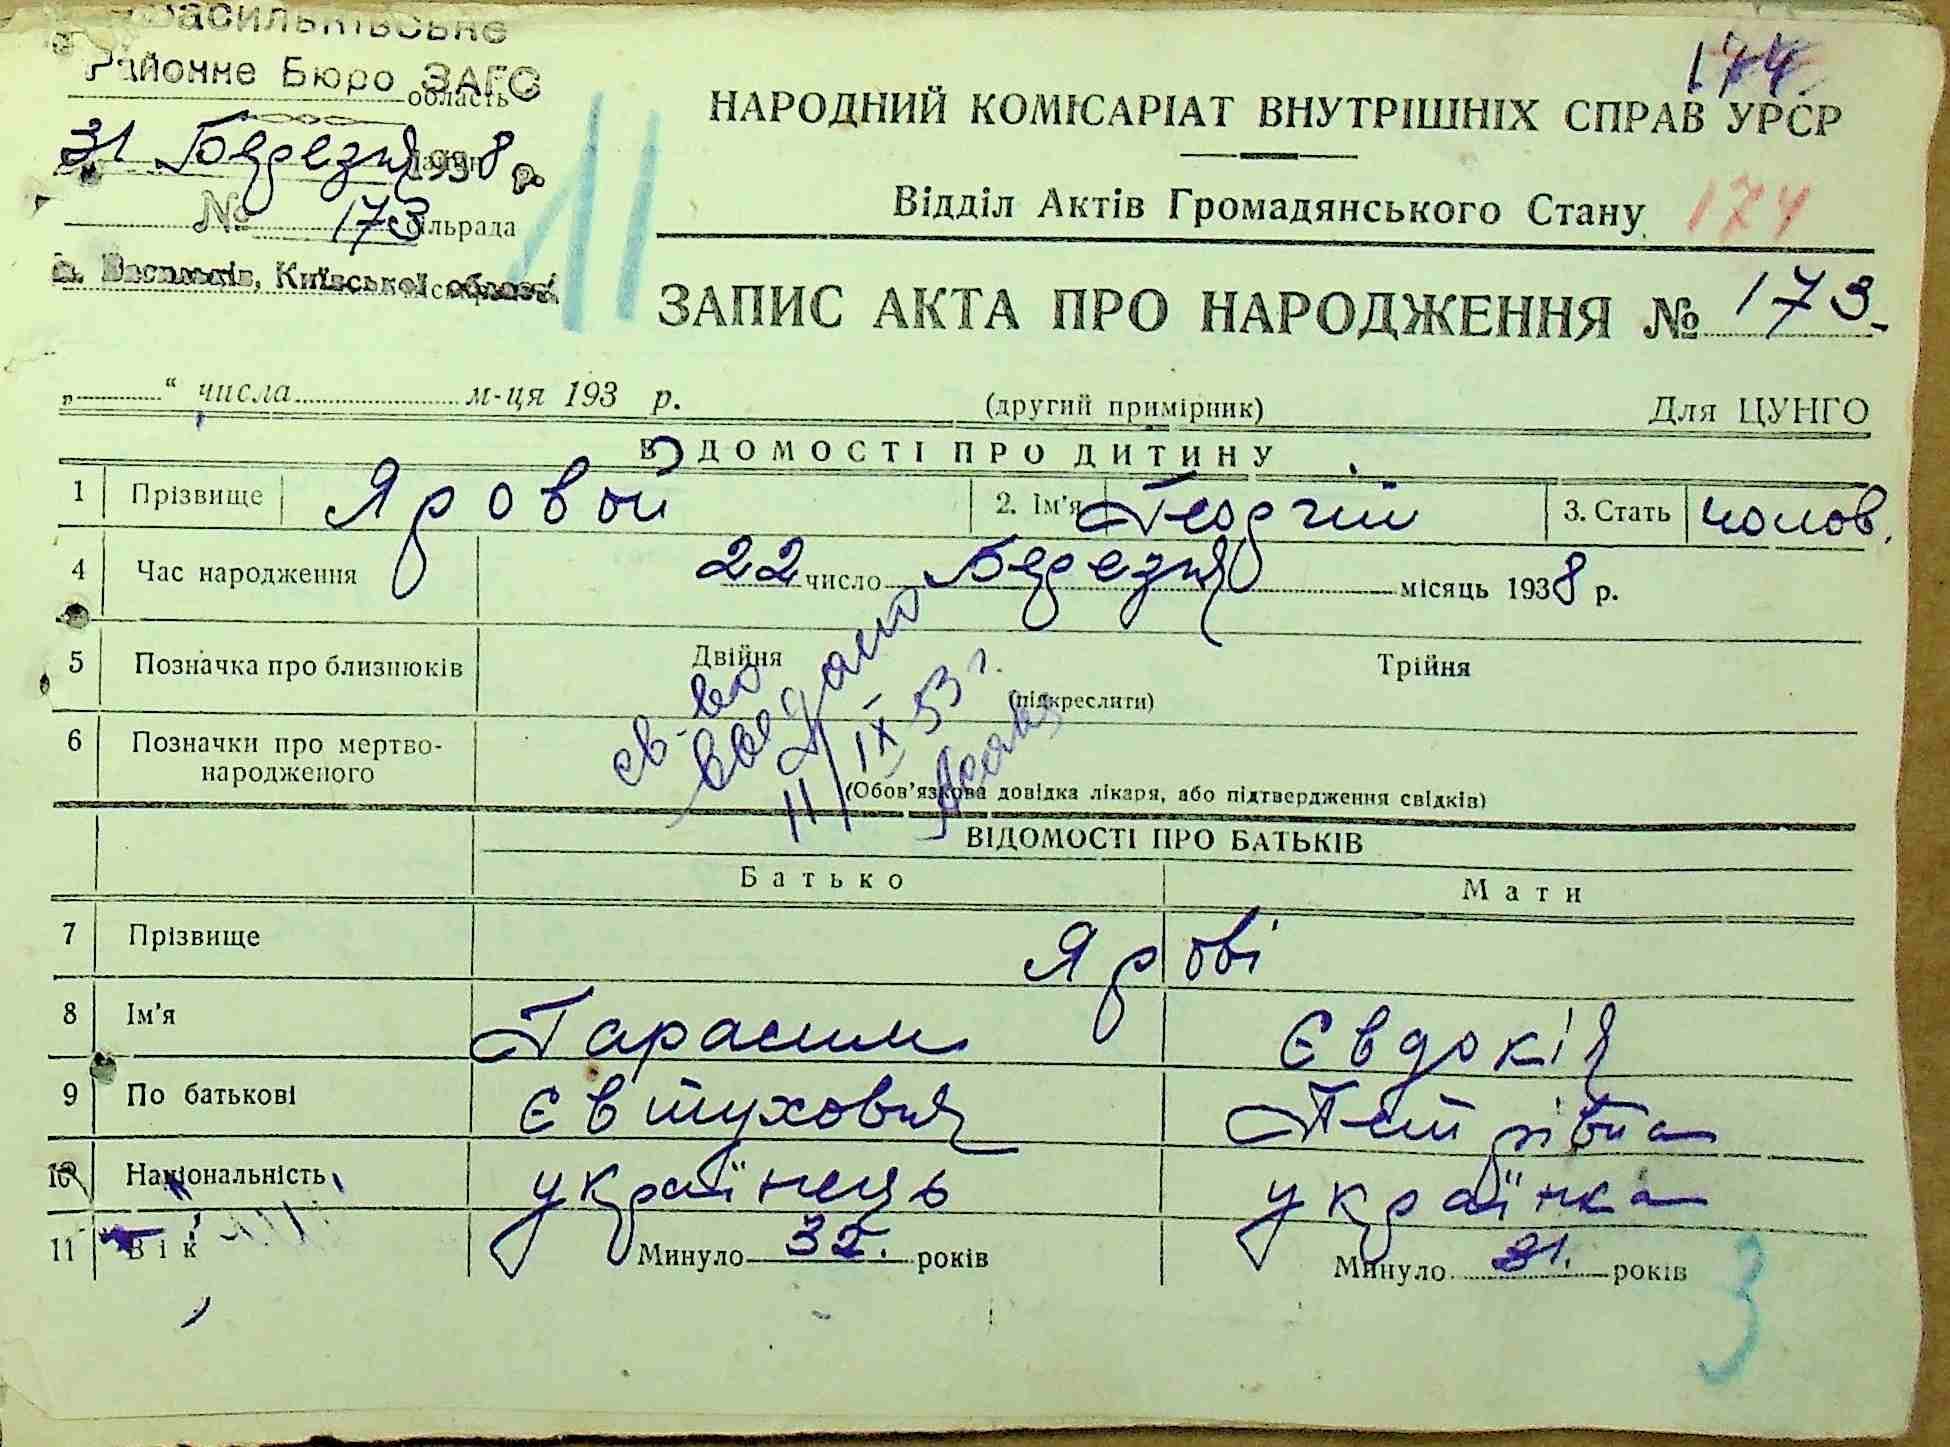 Васильківське
Районне Бюро ЗАГС
область
31 Березня 1938 р.
№ 173 сільрада
м. Васильків, Київської області
174
НАРОДНИЙ КОМІСАРІАТ ВНУТРІШНІХ СПРАВ УРСР
Відділ Актів Громадянського Стану
174
11
ЗАПИС АКТА ПРО НАРОДЖЕННЯ № 173.
„ “ числа м-ця 193 р. (другий примірник) Для ЦУНГО
ВІДОМОСТІ ПРО ДИТИНУ
1 Прізвище Яровой 2. Ім'я Георгій 3. Стать чолов.
4 Час народження 22 число Березня місяць 1938 р.
5 Позначка про близнюків Двійня Трійня
(підкреслити)
6 Позначки про мертво-
народженого
(Обов'язкова довідка лікаря, або підтвердження свідків)
св-во
11/IX 53 г.
ВІДОМОСТІ ПРО БАТЬКІВ
Батько Мати
7 Прізвище Ярові
8 Ім'я Гарасим Євдокія
9 По батькові Євтухович Петрівна
10 Національність українець українка
11 Вік Минуло 32. років Минуло 31. років
3